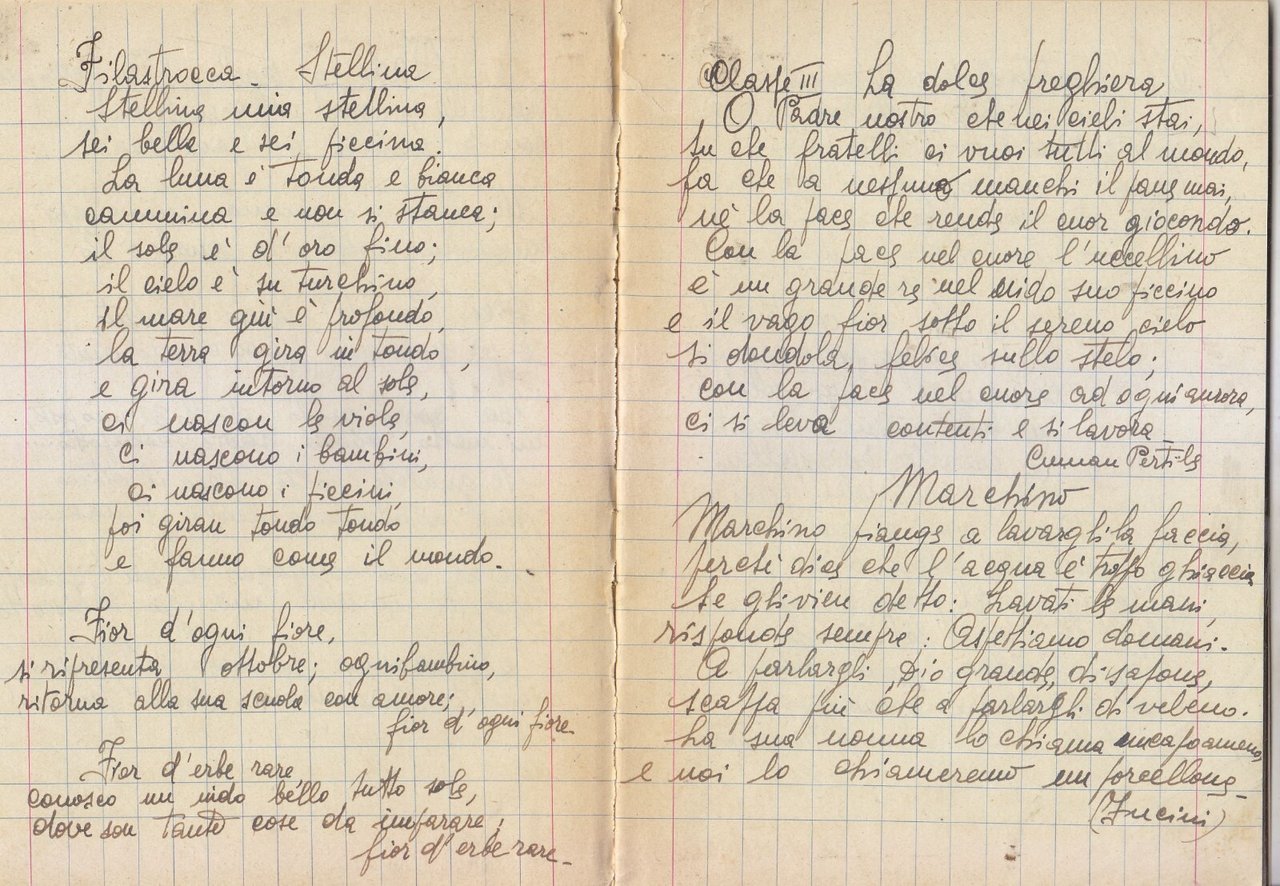 Filastrocca - Stellina
Stellina mia stellina,
sei bella e sei piccina.
La luna è tonda e bianca
cammina e non si stanca;
il sole è d'oro fino;
il cielo è su turchino,
il mare giù è profondo,
la terra gira in tondo,
e gira intorno al sole,
ci nascon le viole,
ci nascono i bambini,
ci nascono i piccini,
poi giran tondo tondo
e fanno come il mondo.
Fior d'ogni fiore,
si ripresenta ottobre; ogni bambino,
ritorna alla sua scuola con amore;
fior d'ogni fiore.
Fior d'erbe rare
conosco un nido bello tutto sole,
dove son tante cose da imparare;
fior d'erbe rare.
Classe III La dolce preghiera
O Padre nostro che nei cieli stai,
tu che fratelli ci vuoi tutti al mondo,
fa che a nessuno manchi il pane mai,
nè la pace che rende il cuor giocondo.
Con la pace nel cuore l'uccellino
è un grande re nel nido suo piccino
e il vago fior sotto il sereno cielo
si dondola, felice sullo stelo;
con la pace nel cuore ad ogni aurora,
ci si leva contenti e si lavora
Cuman Pertile
Marchino
Marchino piange a lavargli la faccia,
perchè dice che l'acqua è troppo ghiaccia
Se gli vien detto: Lavati le mani,
risponde sempre: Aspettiamo domani.
A parlargli, Dio grande, di sapone,
scappa più che a parlargli di veleno.
La sua nonna lo chiama
e noi lo chiameremo un porcellone
(Fucini)